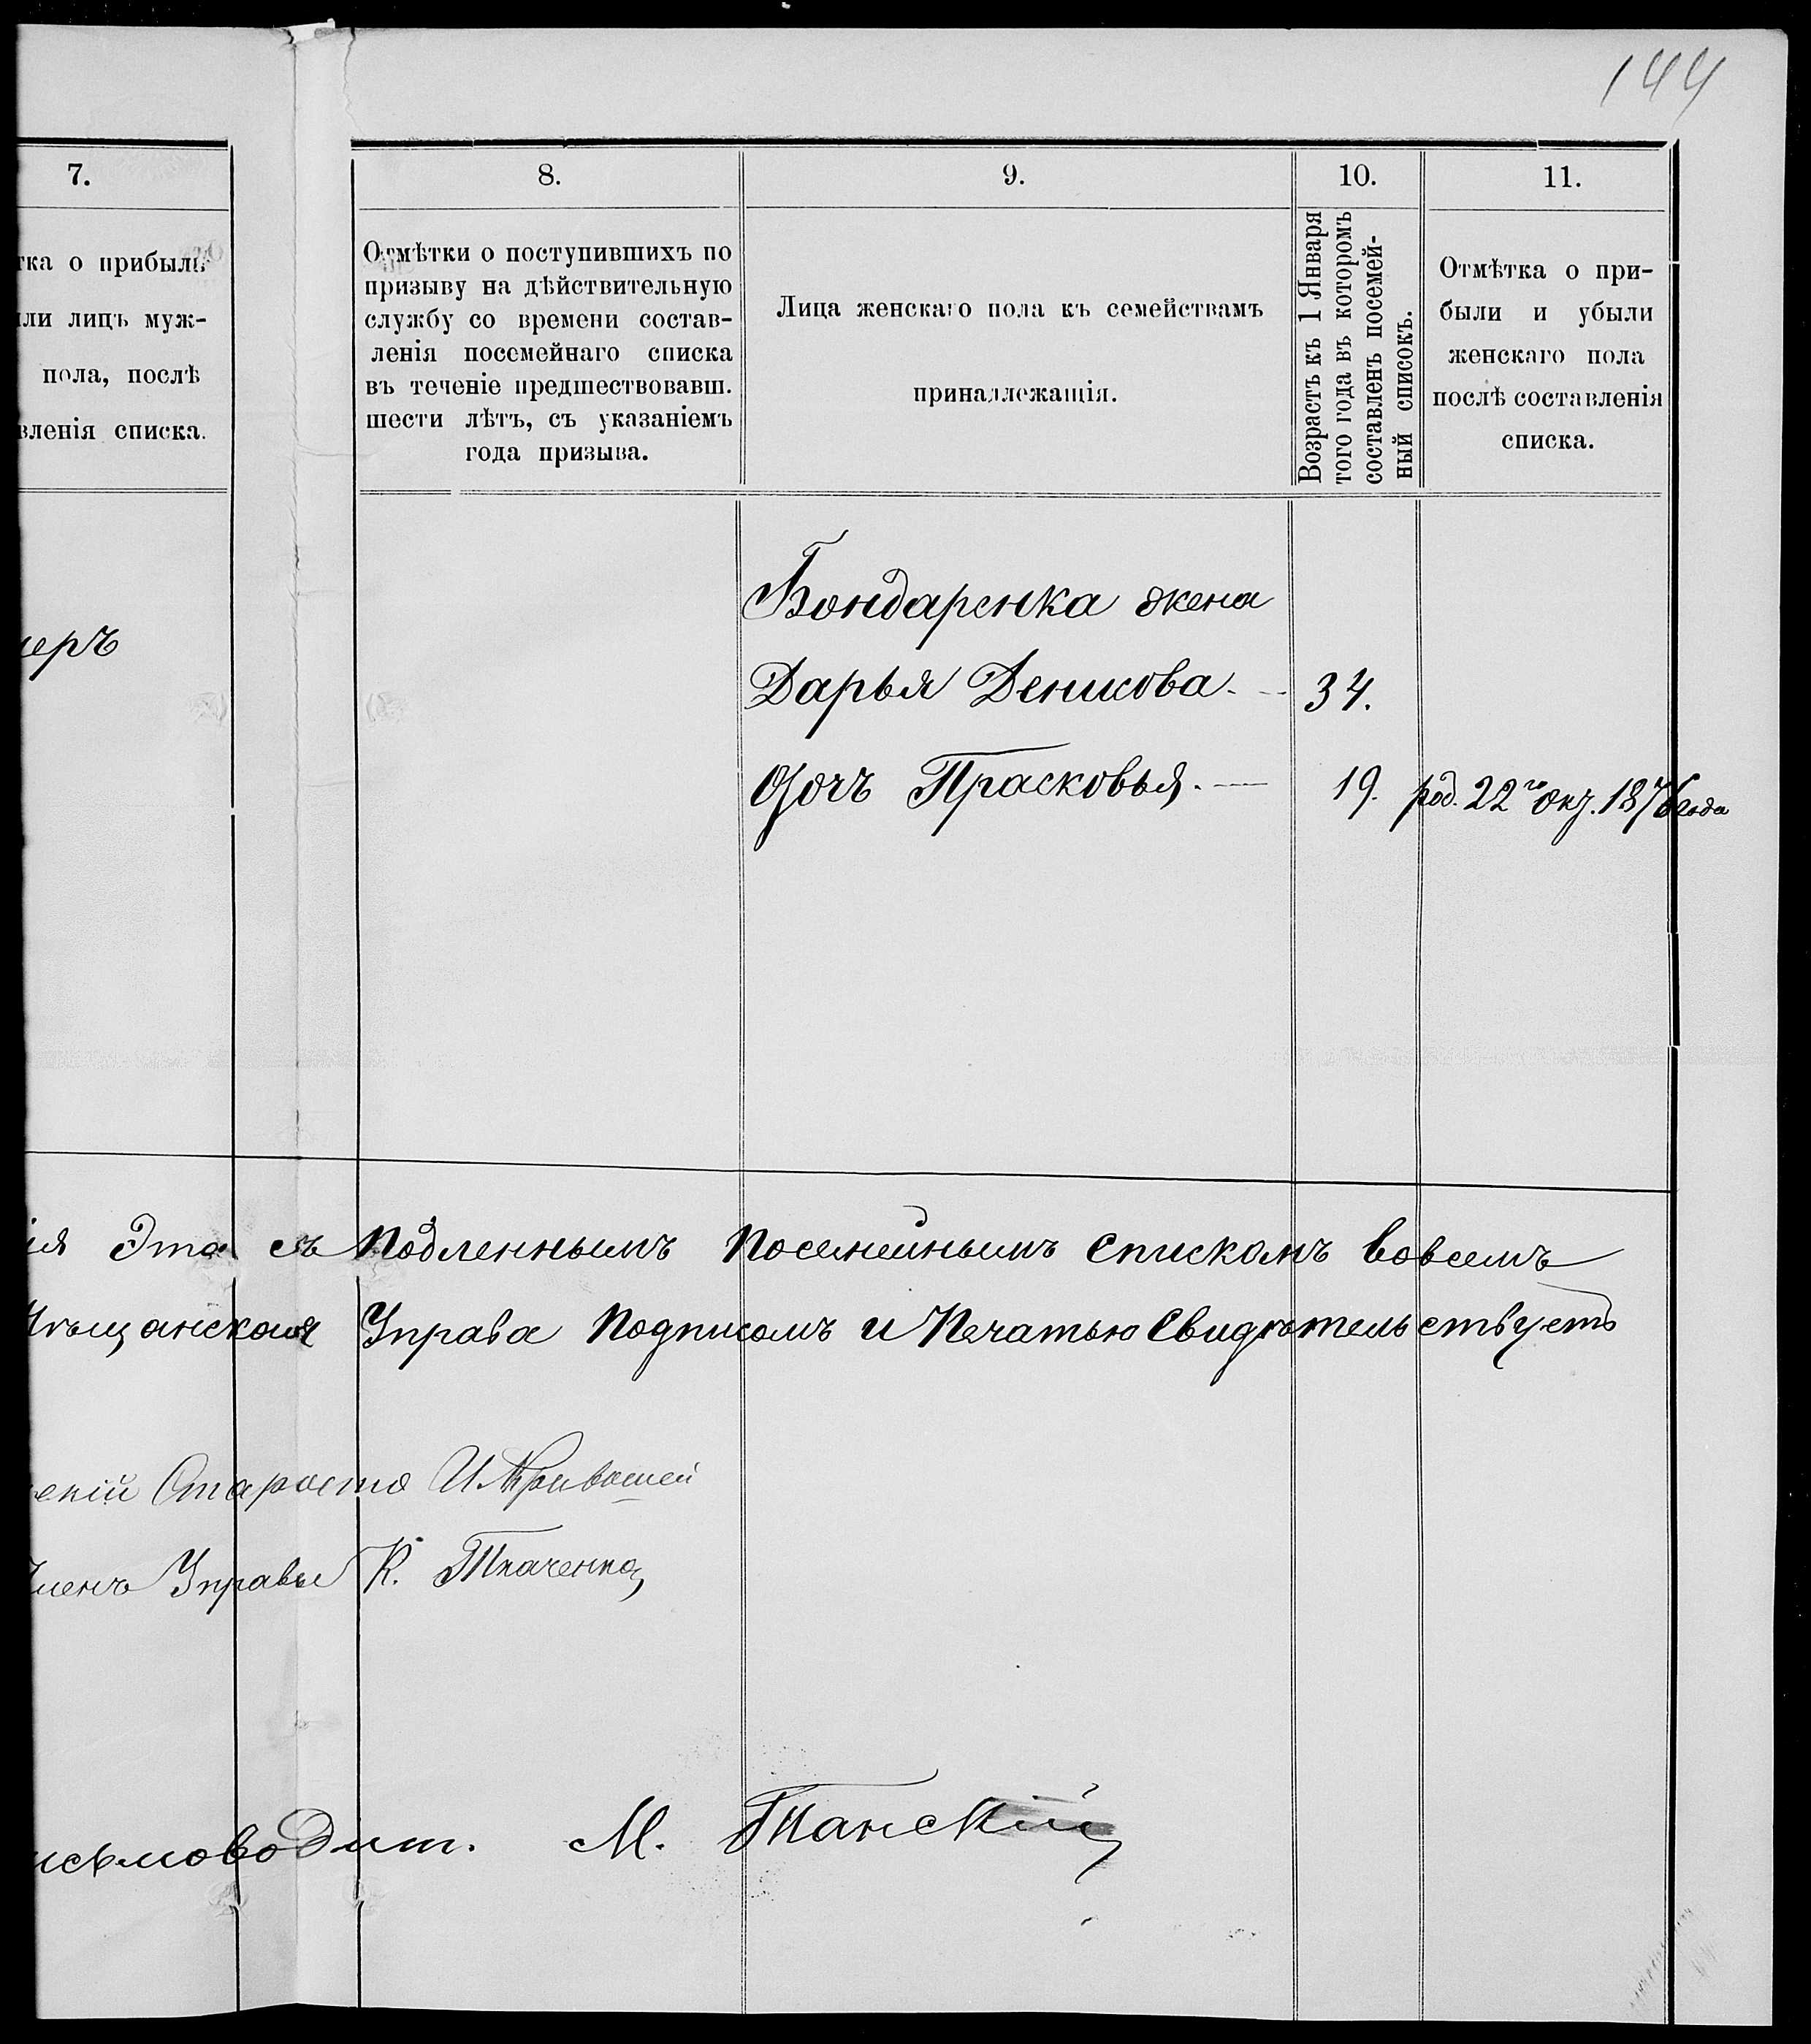 144
7.
тка о прибыли
ли лицъ муж-
пола, послѣ
вленія списка.
меръ
8.
Отмѣтки о поступившихъ по
призыву на дѣйствительную
службу со времени состав-
ленія посемейнаго списка
въ теченіе предшествовавш.
шести лѣтъ, съ указаніемъ
года призыва.
9.
Лица женскаго пола къ семействамъ
принадлежащія.
10.
Возрастъ къ 1 Января
того года въ которомъ
составленъ посемей-
ный списокъ.
11.
Отмѣтка о при-
были и убыли
женскаго пола
послѣ составленія
списка.
Бондаренка жена
Дарья Денисова. - 34.
Дочь Прасковья. — 19. род. 22го Окт. 1876 года
ія Эта съ Подленнымъ Посемейнымъ Спискомъ Вовсемъ
Мѣщанская Управа Подписомъ и Печатью Свидѣтельствуетъ
скій Староста И. Кривошей
Членъ Управы К. Ткаченко
исьмоводит. М. Танскій